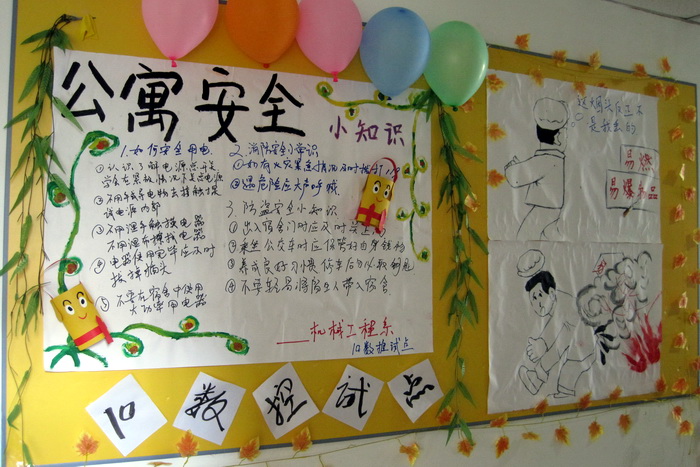 公寓安全
小知识
1.如何安全用电
①认识了解电源总开关
学会在紧急情况下关总电源
②不用手或导电物去接触探
试电源内部
③不用湿手触摸电器
不用湿布擦拭电器
④电器使用完毕应及时
拔掉插头
⑤不要在宿舍中使用
大功率用电器
2.消防安全小常识
①如有火灾等情况及时拨打119
②遇危险应大声呼喊
3.防盗安全小知识
①出入宿舍门时应及时关
②乘坐公交车时应保管好由身钱物
③养成良好习惯停车后必取钥匙
④不要轻易将陌生人带入宿舍
——机械工程系
10数控试点
10数控试点
这烟头又不
是我丢的
易燃
易爆品